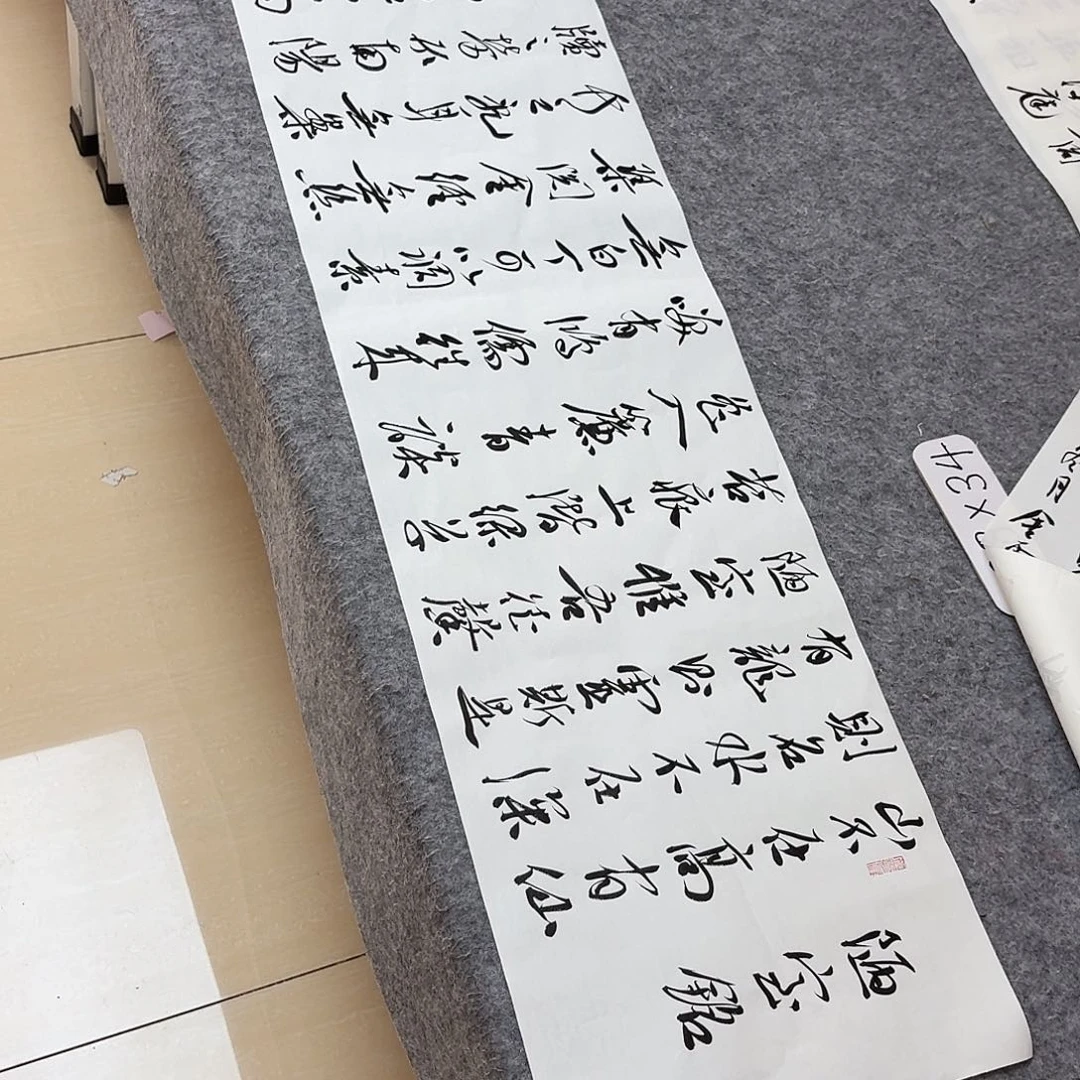 陋室銘
山不在高有仙
則名水不在深
有龍則靈斯是
陋室惟吾德馨
苔痕上階綠草
色入簾青談
笑有鴻儒往來
無白丁可以調素
琴閱金經無絲
竹之亂耳無案
牘之勞形南陽
x34